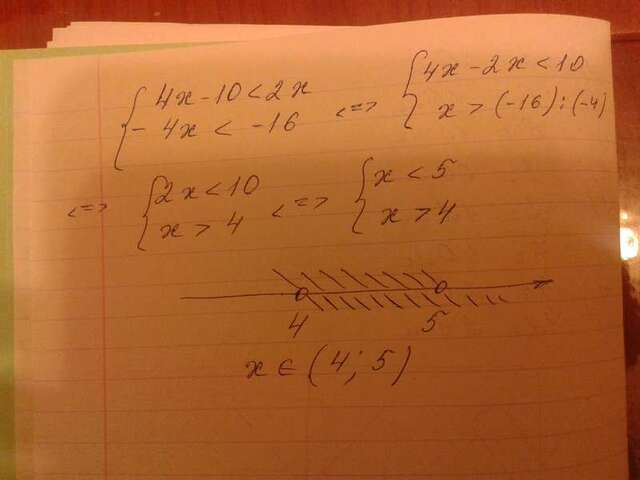 { 4x - 10 < 2x
{ - 4x < -16
<=> { 4x - 2x < 10
{ x > (-16) : (-4)
<=> { 2x < 10
{ x > 4
<=> { x < 5
{ x > 4
4 5
x ∈ (4; 5)